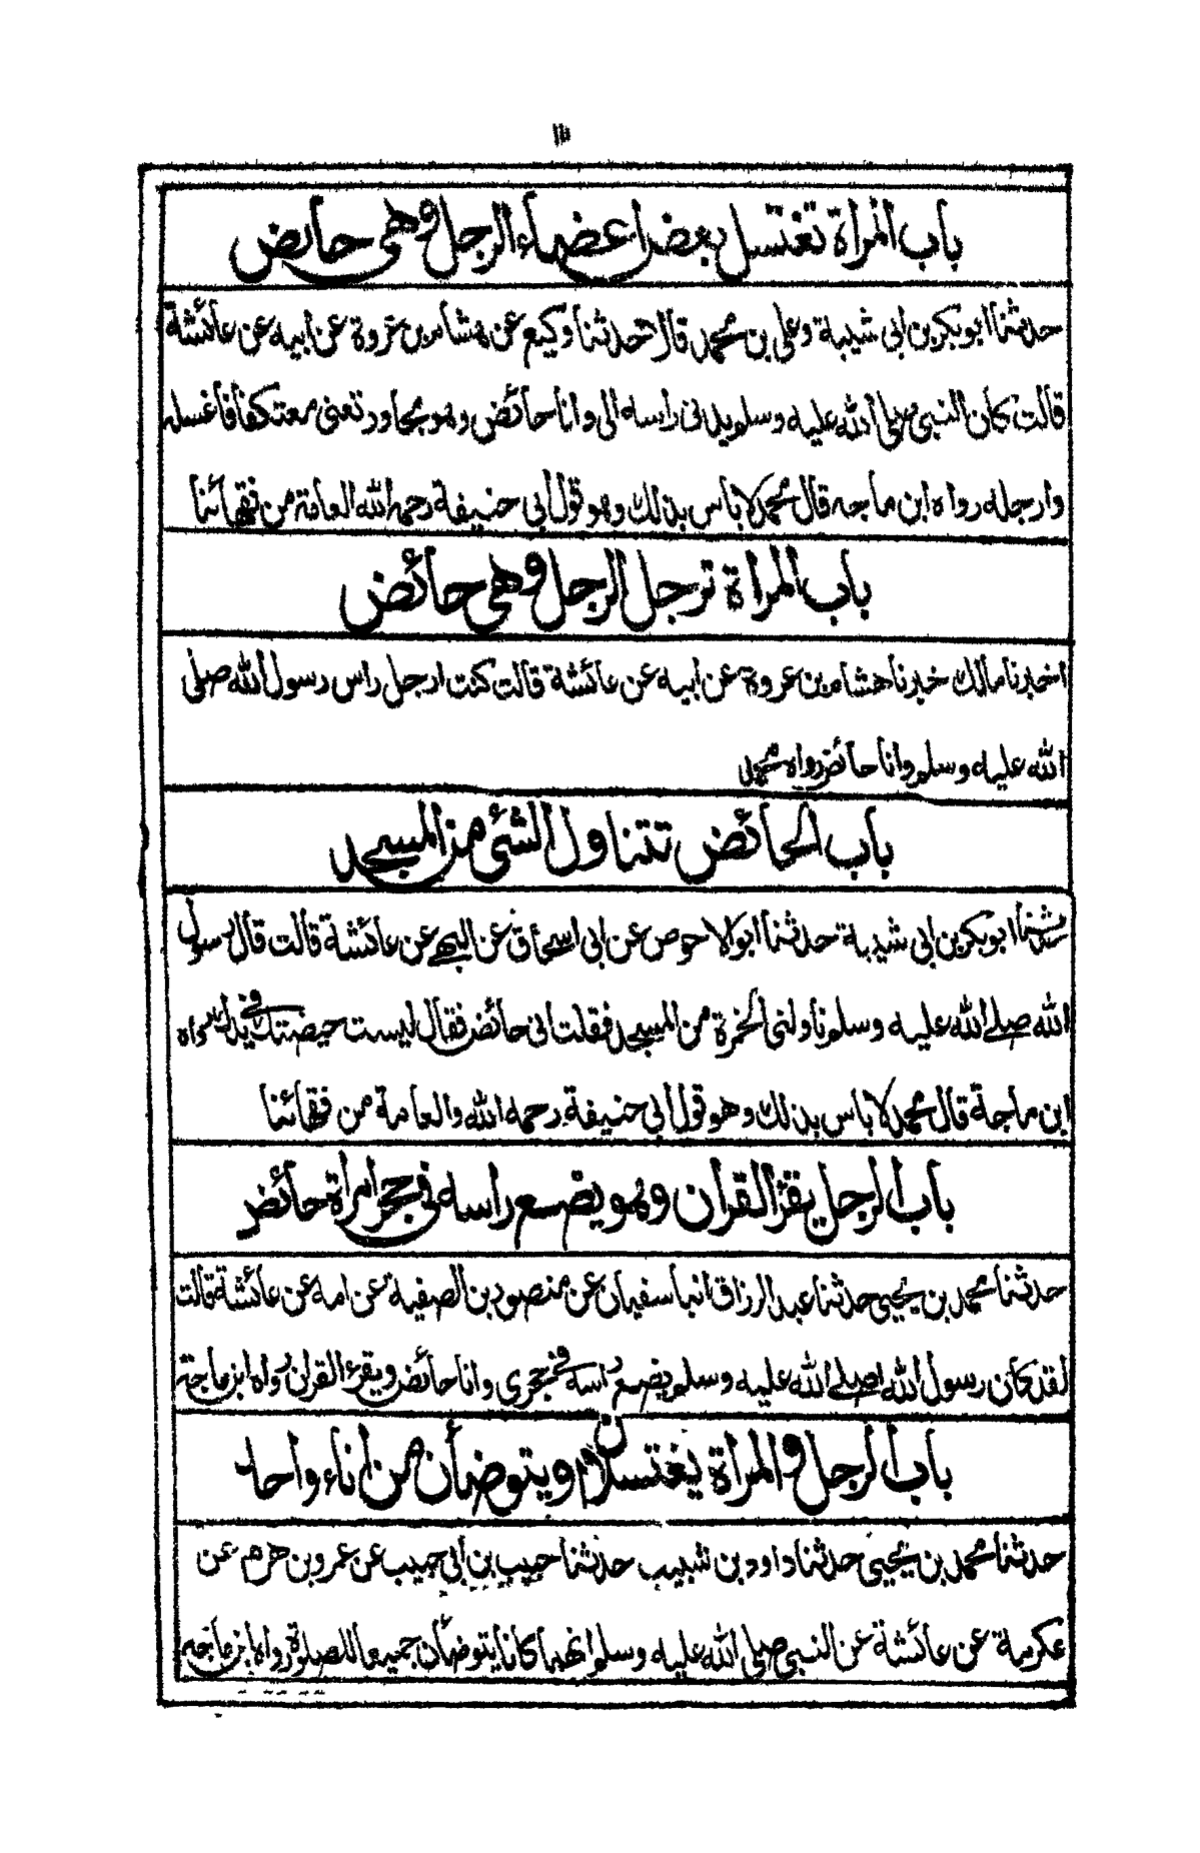 باب المرأة تغتسل بعض اعضاء الرجل وهى حائض
حدثنا ابو بكر بن ابى شيبة وعلى بن محمد قالا حدثنا وكيع عن هشام بن عروة عن ابيه عن عائشة
قالت كان النبى صلى الله عليه وسلم يدنى راسه الى وانا حائض وهو مجاور تعنى معتكفا فاغسله
وارجله رواه ابن ماجه قال محمد لا باس بذلك وهو قول ابى حنيفة رحمه الله العامة من فقهائنا
باب المرأة ترجل الرجل وهى حائض
اخبرنا مالك خبرنا هشام بن عروة عن ابيه عن عائشة قالت كنت ارجل راس رسول الله صلى
الله عليه وسلم وانا حائض رواه محمد
باب الحائض تتناول الشئ من المسجد
حدثنا ابو بكر بن ابى شيبة حدثنا ابو الاحوص عن ابى اسحاق عن البهى عن عائشة قالت قال رسول
الله صلے الله عليه وسلم ناولنى الخمرة من المسجد فقلت انى حائض فقال ليست حيضتك فى يدك رواه
ابن ماجة قال محمد لا باس بذلك وهو قول ابى حنيفة رحمه الله والعامة من فقهائنا
باب الرجل يقرٔ القران وهو يضع راسه فى حجر امرأة حائض
حدثنا محمد بن يحيى حدثنا عبد الرزاق انبا سفيان عن منصور بن الصفية عن امه عن عائشة قالت
لقد كان رسول الله صلے الله عليه وسلم يضع راسه فى حجرى وانا حائض ويقرء القران رواه ابن ماجة
باب الرجل والمرأة يغتسلان ويتوضأن من اناء واحد
حدثنا محمد بن يحيى حدثنا داود بن شبيب حدثنا حبيب بن ابى حبيب عن عمرو بن هرم عن
عكرمة عن عائشة عن النبى صلى الله عليه وسلم انهما كانا يتوضأن جميعا للصلوة رواه ابن ماجه